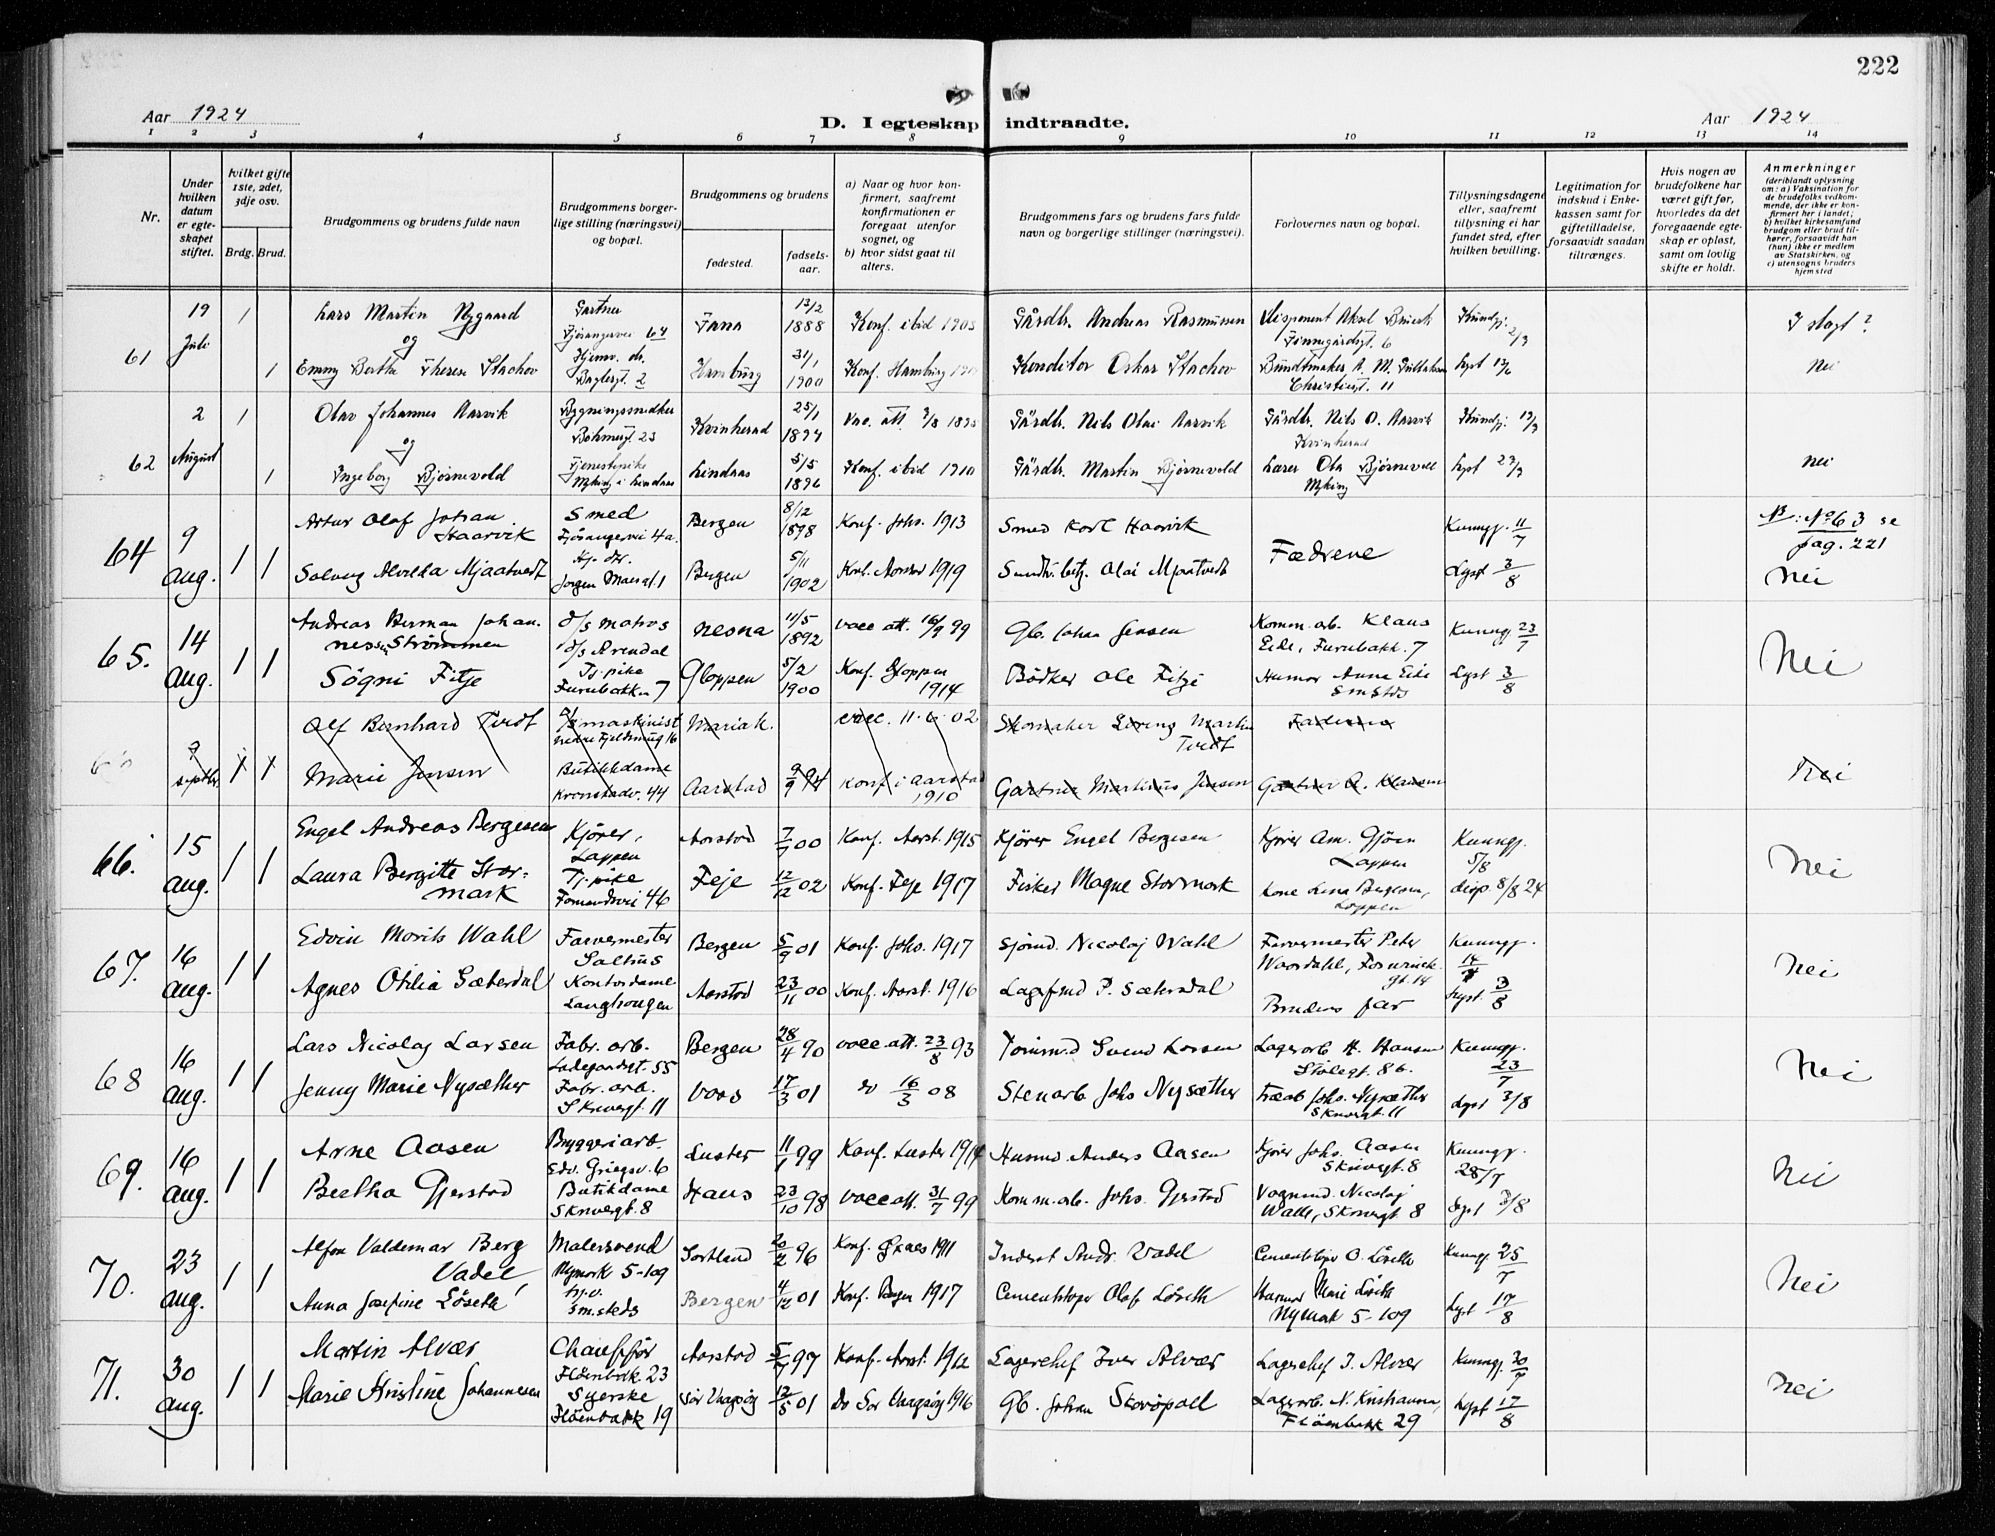 222
Aar 1924
D. I egteskap indtraadte.
Aar 1924
1 2 3 4 5 6 7 8 9 10 11 12 13 14
Nr.
Under hvilken datum er egte-skapet stiftet.
hvilket gifte 1ste, 2det, 3dje osv.
Brdg. Brud.
Brudgommens og brudens fulde navn
Brudgommens borger-lige stilling (næringsvei) og bopæl.
Brudgommens og brudens
fødested.
fødsels-aar.
a) Naar og hvor kon-firmert, saafremt konfirmationen er foregaat utenfor sognet, og
b) hvor sidst gaat til alters.
Brudgommens fars og brudens fars fulde navn og borgerlige stillinger (næringsvei).
Forlovernes navn og bopæl.
Tillysningsdagene eller, saafremt tillysning ei har fundet sted, efter hvilken bevilling.
Legitimation for indskud i Enke-kassen samt for giftetilladelse, forsaavidt saadan tiltrænges.
Hvis nogen av brudefolkene har været gift før, hvorledes da det foregaaende egte-skap er opløst, samt om lovlig skifte er holdt.
Anmerkninger
(deriblandt oplysning om: a) Vaksination for de brudefolks vedkom-mende, der ikke er kon-firmert her i landet; b) hvilket kirkesamfund brudgom eller brud til-hører, forsaavidt han (hun) ikke er medlem av Statskirken, og c) utensogns bruders hjemsted
61 19 Juli 1 Lars Martin Nygaard Gartner Fjøsangervei 64 Fana 13/2 1888 Konf. ibid 1903 Gårdbr. Andreas Rasmussen Disponent Aksel Kundgj. 2/7 I slagt?
og
1 Emmy Bertha Therese Stachov Hjemv. dr. 2 Hamburg 31/1 1900 Konf. Hamburg Konditor Oskar Stachov Bundtmaker A. M. Christiesgt. 11 Lyst nei
62 2 August 1 Olav Johannes Aarvik Bygningssnedker Bøhmergt. 23 Kvinherad 25/1 1894 Vac. att. Gårdbr. Nils Olai Aarvik Gårdbr. Nils O. Aarvik Kvinherad Kundgj.
og
1 Ingeborg Bjørnevold Tjenestepike Myking i Lindaas Lindaas 5/5 1896 Konf. ibid 1910 Gårdbr. Martin Bjørnevold Lærer Ola Bjørnevoll Myking Lyst nei
64 9 aug. 1 1 Artur Olaf Johan Haarvik Smed Fjøsangervei 4a. Bergen 8/12 1898 Konf. Johs. 1913 Smed Karl Haarvik Fædrene Kunngj. 11/7 NB: No 63 se pag. 221
Solveig Alvilda Mjaatvedt Hj. dtr. Jørgen Moesgt. 1 Bergen 5/11 1902 Konf. Aarstad 1919 Olai Mjaatvedt Lyst 3/8 Nei
65. 14 aug. 1 1 Andreas Berman Johan-nessen Strømmen d/s matros d/s Arendal Nesna 11/5 1892 vacc att. 16/9 99 Gb. Johan Jensen Komm. arb. Klaus Eide, Furubakk. 7 Kunngj 23/7
Sögni Fitje Tj. pike Furubakken 7 Gloppen 5/2 1900 Konf. Gloppen 1914 Bödker Ole Fitje Husmor Anna Eide smsteds Lyst 3/8 Nei
9 septbr. 1 1 Alf Bernhard Tvedt d/s maskinist nedre Fjeldsmug 16 Mariak. vacc. 11-6-02 Skomaker Martin Tvedt Faderen
Marie Jensen Butikkdame Kronstadv. 44 Aarstad 9/9 94 Konf i Aarstad 1910 Gartner Martinius Jensen Gartner R. Klausen Nei
66. 15 aug. 1 1 Engel Andreas Bergesen Kjører, Lappen Aarstad 7/7 00 Konf. Aarst. 1915 Kjører Engel Bergesen Kjører Am. Gjøen Lappen Kunngj. 5/8
Laura Bergitte Stormark Tj. pike Formandsvei 46 Feje 12/12 02 Konf. Feje 1917 Fisker Magne Stormark Kone Lina Bergesen, Lappen disp. 8/8 24 Nei
67. 16 aug. 1 1 Edvin Morits Wahl Farvermester Salhus Bergen 5/9 01 Konf. Johs. 1917 Sjömd. Nicolaj Wahl Farvermester Peter Waardahl, gt. 14 Kunngj. 14/7
Agnes Otilia Sæterdal Kontordame Langhaugen Aarstad 23/11 00 Konf. Aarst. 1916 P. Sætersdal Brudens far Lyst. 3/8 Nei
68 16 aug. 1 1 Lars Nicolaj Larsen Fabr. arb. Ladegaardsgt. 55 Bergen 28/4 90 vacc. att. 23/8 93 Tømmd Svend Larsen Lagerarb H. Hansen Stølegt. 8b. Kunngj. 23/7
Jenny Marie Nysæther Fabr. arb. Skrivergt. 11 Voss 17/3 01 do 16/3 08 Stenarb Johs Nysæther Johs. Nysæther Skrivergt. 11 Lyst 3/8 Nei
69. 16 aug. 1 1 Arne Aasen Bryggeriarb. Edv. Griegsv. 6 Luster 11/1 99 Konf. Luster 1914 Husmd. Anders Aasen Kjører Johs. Aasen Skrivergt. 8 Kunngj. 25/7
Bertha Gjerstad Butikdame Skrivergt. 8 Haus 23/10 98 vacc att. 31/7 99 Komm. arb. Johs. Gjerstad Vognmd. Nicolaj Walle, Skrivergt. 8 Lyst 3/8 Nei
70. 23 aug. 1 1 Alfon Valdemar Berg Vadel, Malersvend Nymark 5-109 Sortland 20/2 96 Konf. 1911 Andr. Vadel Cementstøper O. Löseth Kunngj. 25/7
Anna Josefine Löseth smsteds Bergen 4/12 01 Konf. Bergen 1917 Cementstøper Olaf Löseth Husmor Marie Löseth Nymark 5-109 Lyst 17/8 Nei
71. 30 aug. 1 1 Martin Alvær Chaufför Flöenbakk. 23 Aarstad 5/7 97 Konf. Aarst. 1912 Lagerchef Iver Alvær Lagerchef I. Alvær Kunngj. 30/7
Marie Kristine Johannesen Syerske Flöenbakk 19 Sør Vaagsøy 12/5 01 Do Sør Vaagsøy 1916 Gb. Johan Lagerarb. N. Kristiansen, Flöenbakk 29 Lyst 17/8 Nei